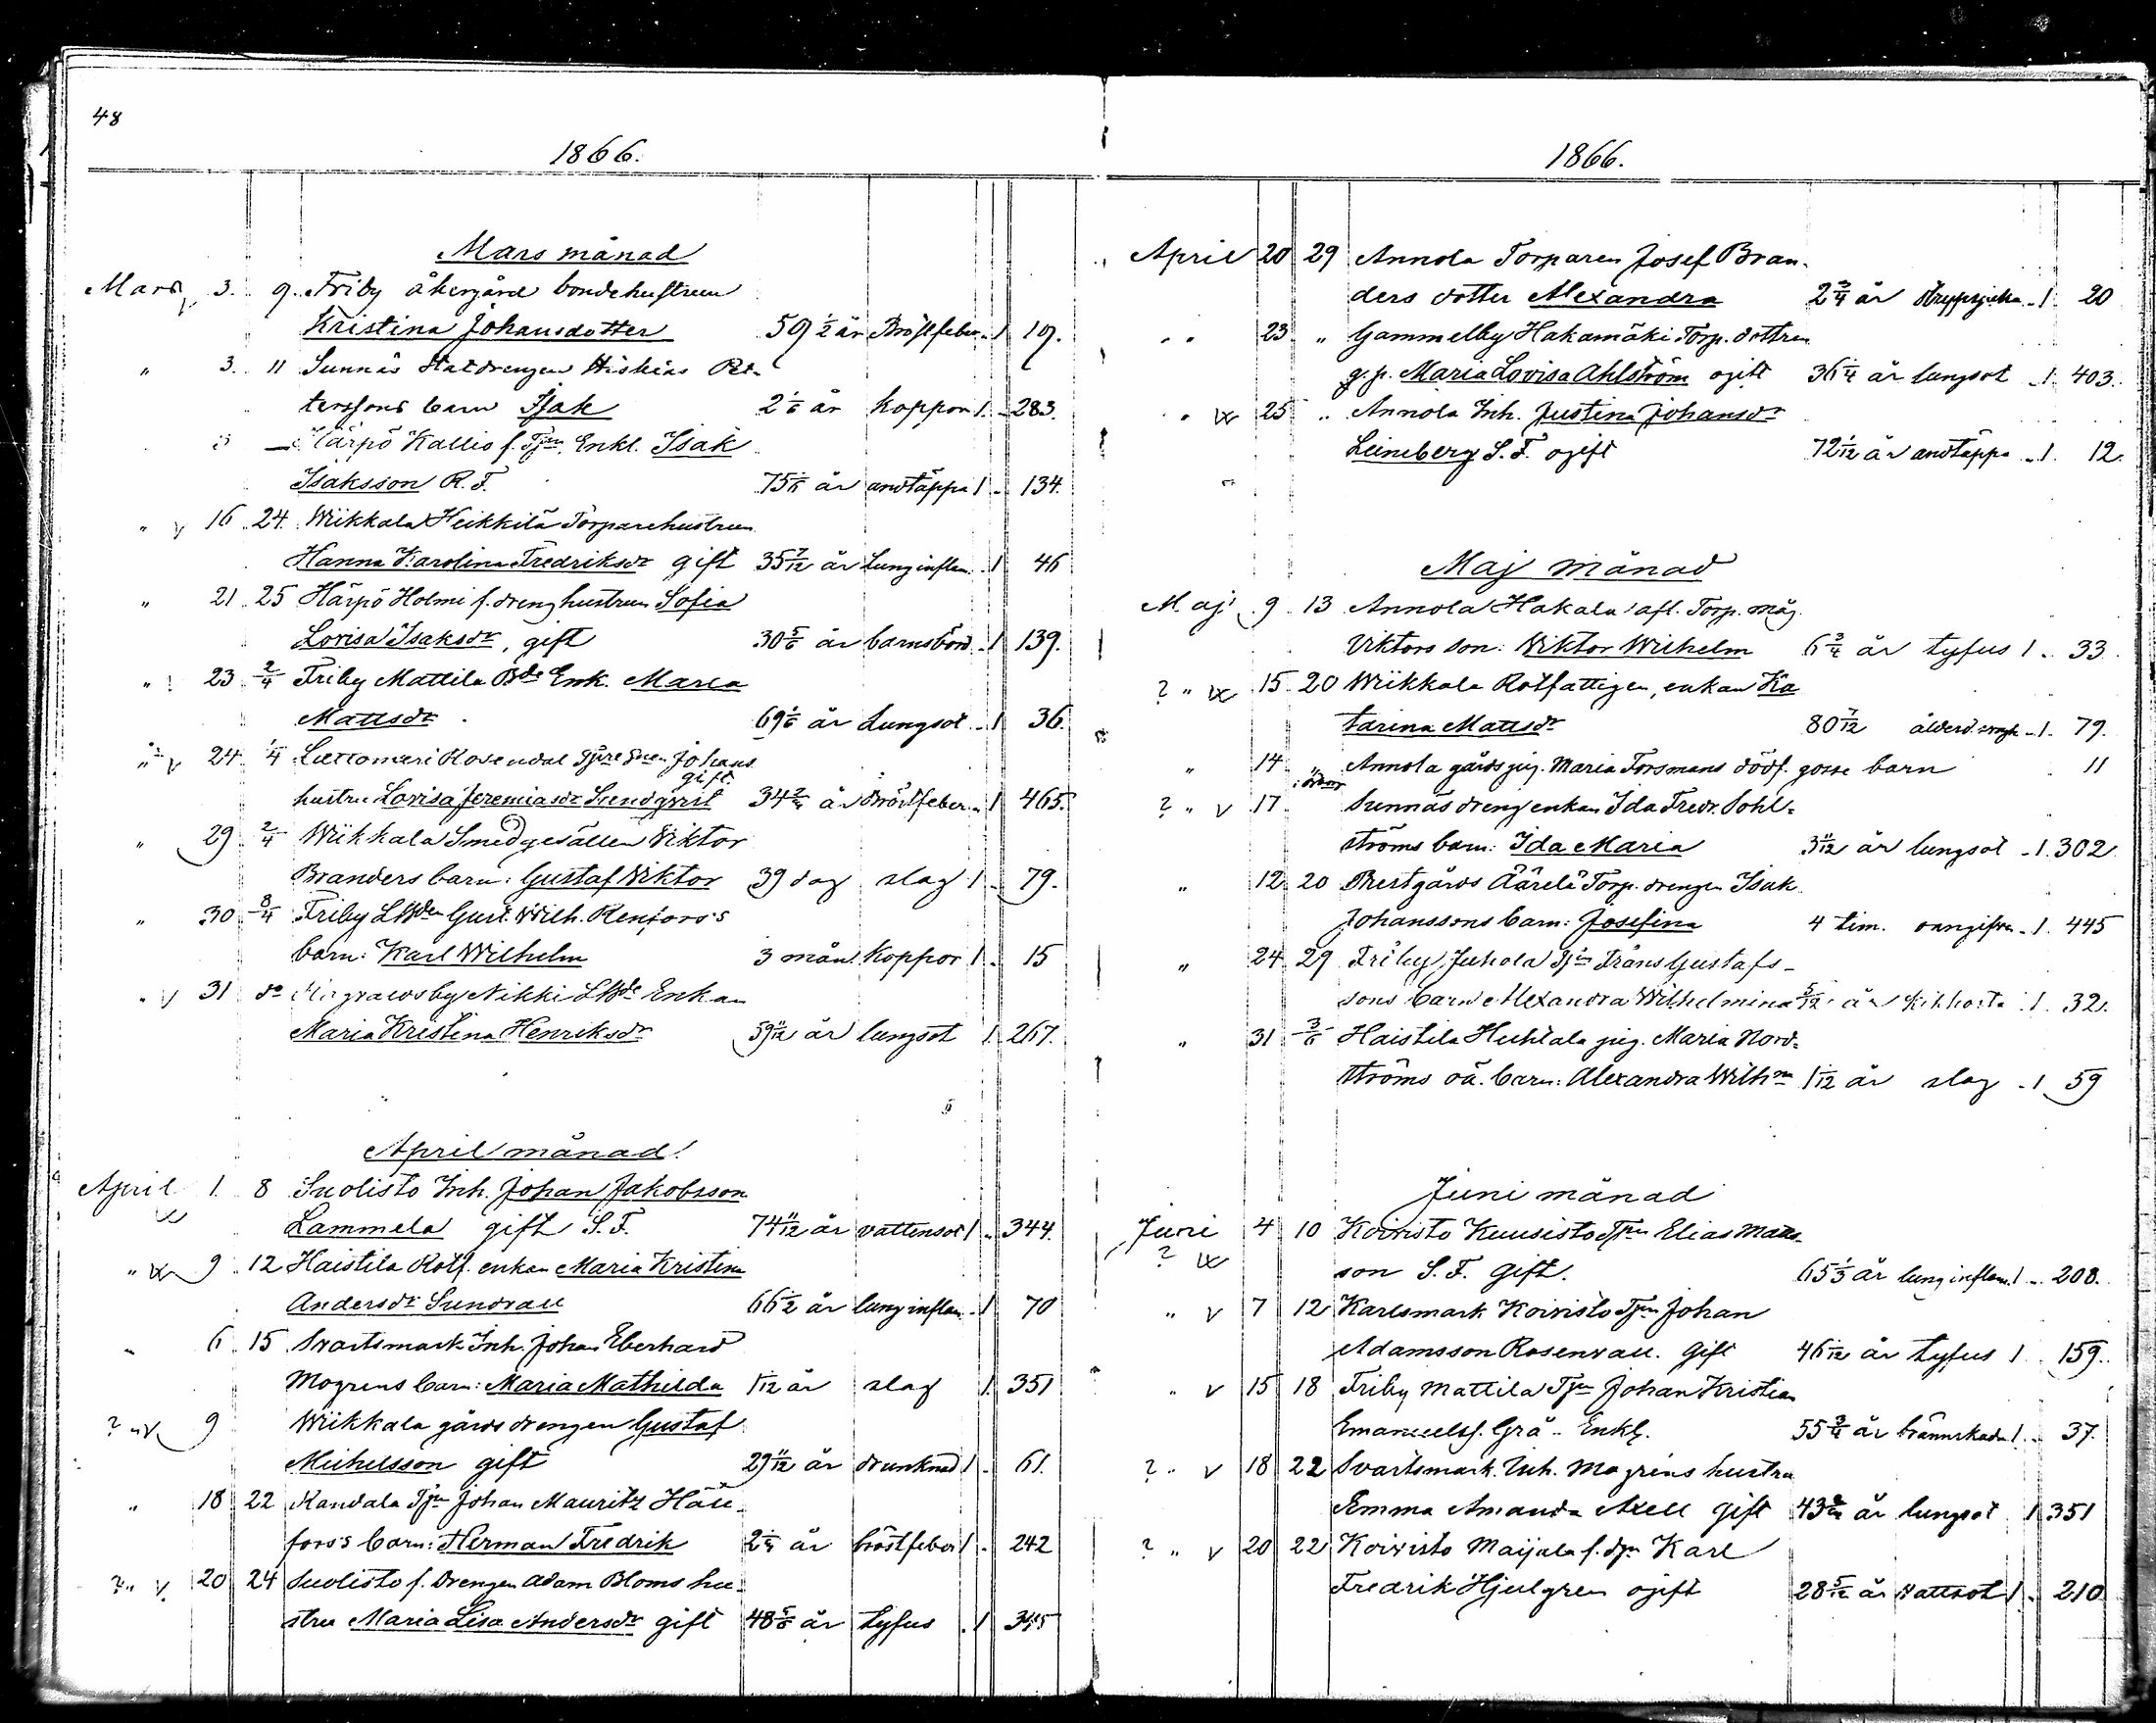 48
1866.
Mars månad
Mars 3. 9. Friby åkergård bondehustrun
Kristina Johansdotter 59 1/2 år Bröstfeber 1 19.
" 3. 11 Sunnäs Statdrengen Hiskias Pet-
terssons barn Isak 2 1/6 år koppor 1. 283.
Härpö Kallio f. Tjn Enkl. Isak
Isaksson R. F. 75 1/6 år andtäppa 1 134.
" v 16 24. Wiikkala Heikkilä Torparehustrun
Hanna Karolina Fredriksdr gift 35 7/12 år Lunginflam. 1 46
" 21 25 Härpö Holmi f. dreng hustrun Sofia
Lovisa Isaksdr, gift 30 5/6 år barnsbörd 1 139.
" 23 2/4 Friby Mattila Bde Enk. Maria
Mattsdr 69 1/6 år Lungsot 1 36.
" v 24 1/4 Luttomeri Rosendal Johans
gift
hustru Lovisa Jeremiasdr Lundqvist 34 2/4 år Bröstfeber 1 465.
" 29 2/4 Wiikkala Smedgesällen Viktor
Branders barn: Gustaf Viktor 39 dag slag 1 79.
" 30 8/4 Friby Gust. Wilh. Renfors's
barn: Karl Wilhelm 3 mån. Koppor 1 15
" v 31 do Nikki Enkan
Maria Kristina Henriksdr 59 11/12 år lungsot 1 267.
April månad
April 1. 8 Suolisto Inh. Johan Jakobsson
Lammela gift S. F. 74 11/12 år vattensot 1 344.
" 9 12 Haistila Rotf. enkan Maria Kristina
Andersdr Sundvall 66 1/2 år lunginflam 1 70
" 6 15 Svartsmark Inh. Johan Eberhard
Mogrens barn: Maria Mathilda 1/12 år slag 1. 351
? " v 9 Wiikkala gårds drengen Gustaf
Michelsson gift 29 11/12 år drunknad 1 61.
" 18 22 Kandala Tjn Johan Mauritz Häll-
fors's barn: Herman Fredrik 2 1/4 år bröstfeber 1 242
? " v. 20 24 Suolisto f. Drengen Adam Bloms hu-
stru Maria Lisa Andersdr gift 48 5/6 år tyfus 1 345
1866.
April 20 29 Annola Torparen Josef Bran-
ders dotter Alexandra 2 3/4 år strypsjuka 1. 20
" 23. " Gammelby Hakamäki Torp. dottren
g. p. Maria Lovisa Ahlström ogift 36 1/4 år lungsot 1. 403.
" 25 " Annola Inh. Justina Johansdr
Leineberg S. F. ogift 72 1/12 år andtäppa 1. 12.
Maj månad
Maj 9 13 Annola Hakala afl. Torp. måg
Viktors son: Viktor Wilhelm 6 3/4 år tyfus 1. 33.
? " 15 20 Wiikkala Rotfattigen, enkan Ka
tarina Mattsdr 80 7/12 1. 79.
" 14 " Annola gårds pig. Maria Forsmans dödf. gosse barn 11
? " v 17 Sunnäs dreng enkan Ida Fredr. Sohl-
ströms barn: Ida Maria 3 11/12 år lungsot 1. 302
" 12 20 Prestgårds Äärelä Torp. drengen Isak
Johanssons barn: Josefina 4 tim. oangifven 1. 445
" 24 29 Friby Juhola Tjn Frans Gustafs-
sons barn Alexandra Wilhelmina 5/12 år Kikhosta 1. 32.
" 31 3/6 Haistila Huhtala pig. Maria Nord-
ströms oä. barn: Alexandra Wilhma 1/12 år slag 1 59
Juni månad
Juni 4 10 Koivisto Kuusisto Tjn Elias Matts-
? son S. F. gift. 65 1/3 år lunginflam. 1 208.
" v 7 12 Karlsmark Koivisto Tjn Johan
Adamsson Rosenvall. gift 46 1/12 år tyfus 1 159.
" v 15 18 Friby Mattila Tjn Johan Kristian
Emanuelss. Grå Enkl. 55 3/4 år brännskada 1. 37.
? " v 18 22 Svartsmark. Inh. Mogrens hustru
Emma Amanda Axell gift 43 år lungsot 1 351
? " v 20 22 Koivisto Maijala f. Karl
Fredrik Hjulgren ogift 28 5/12 år Vattsot 1. 210